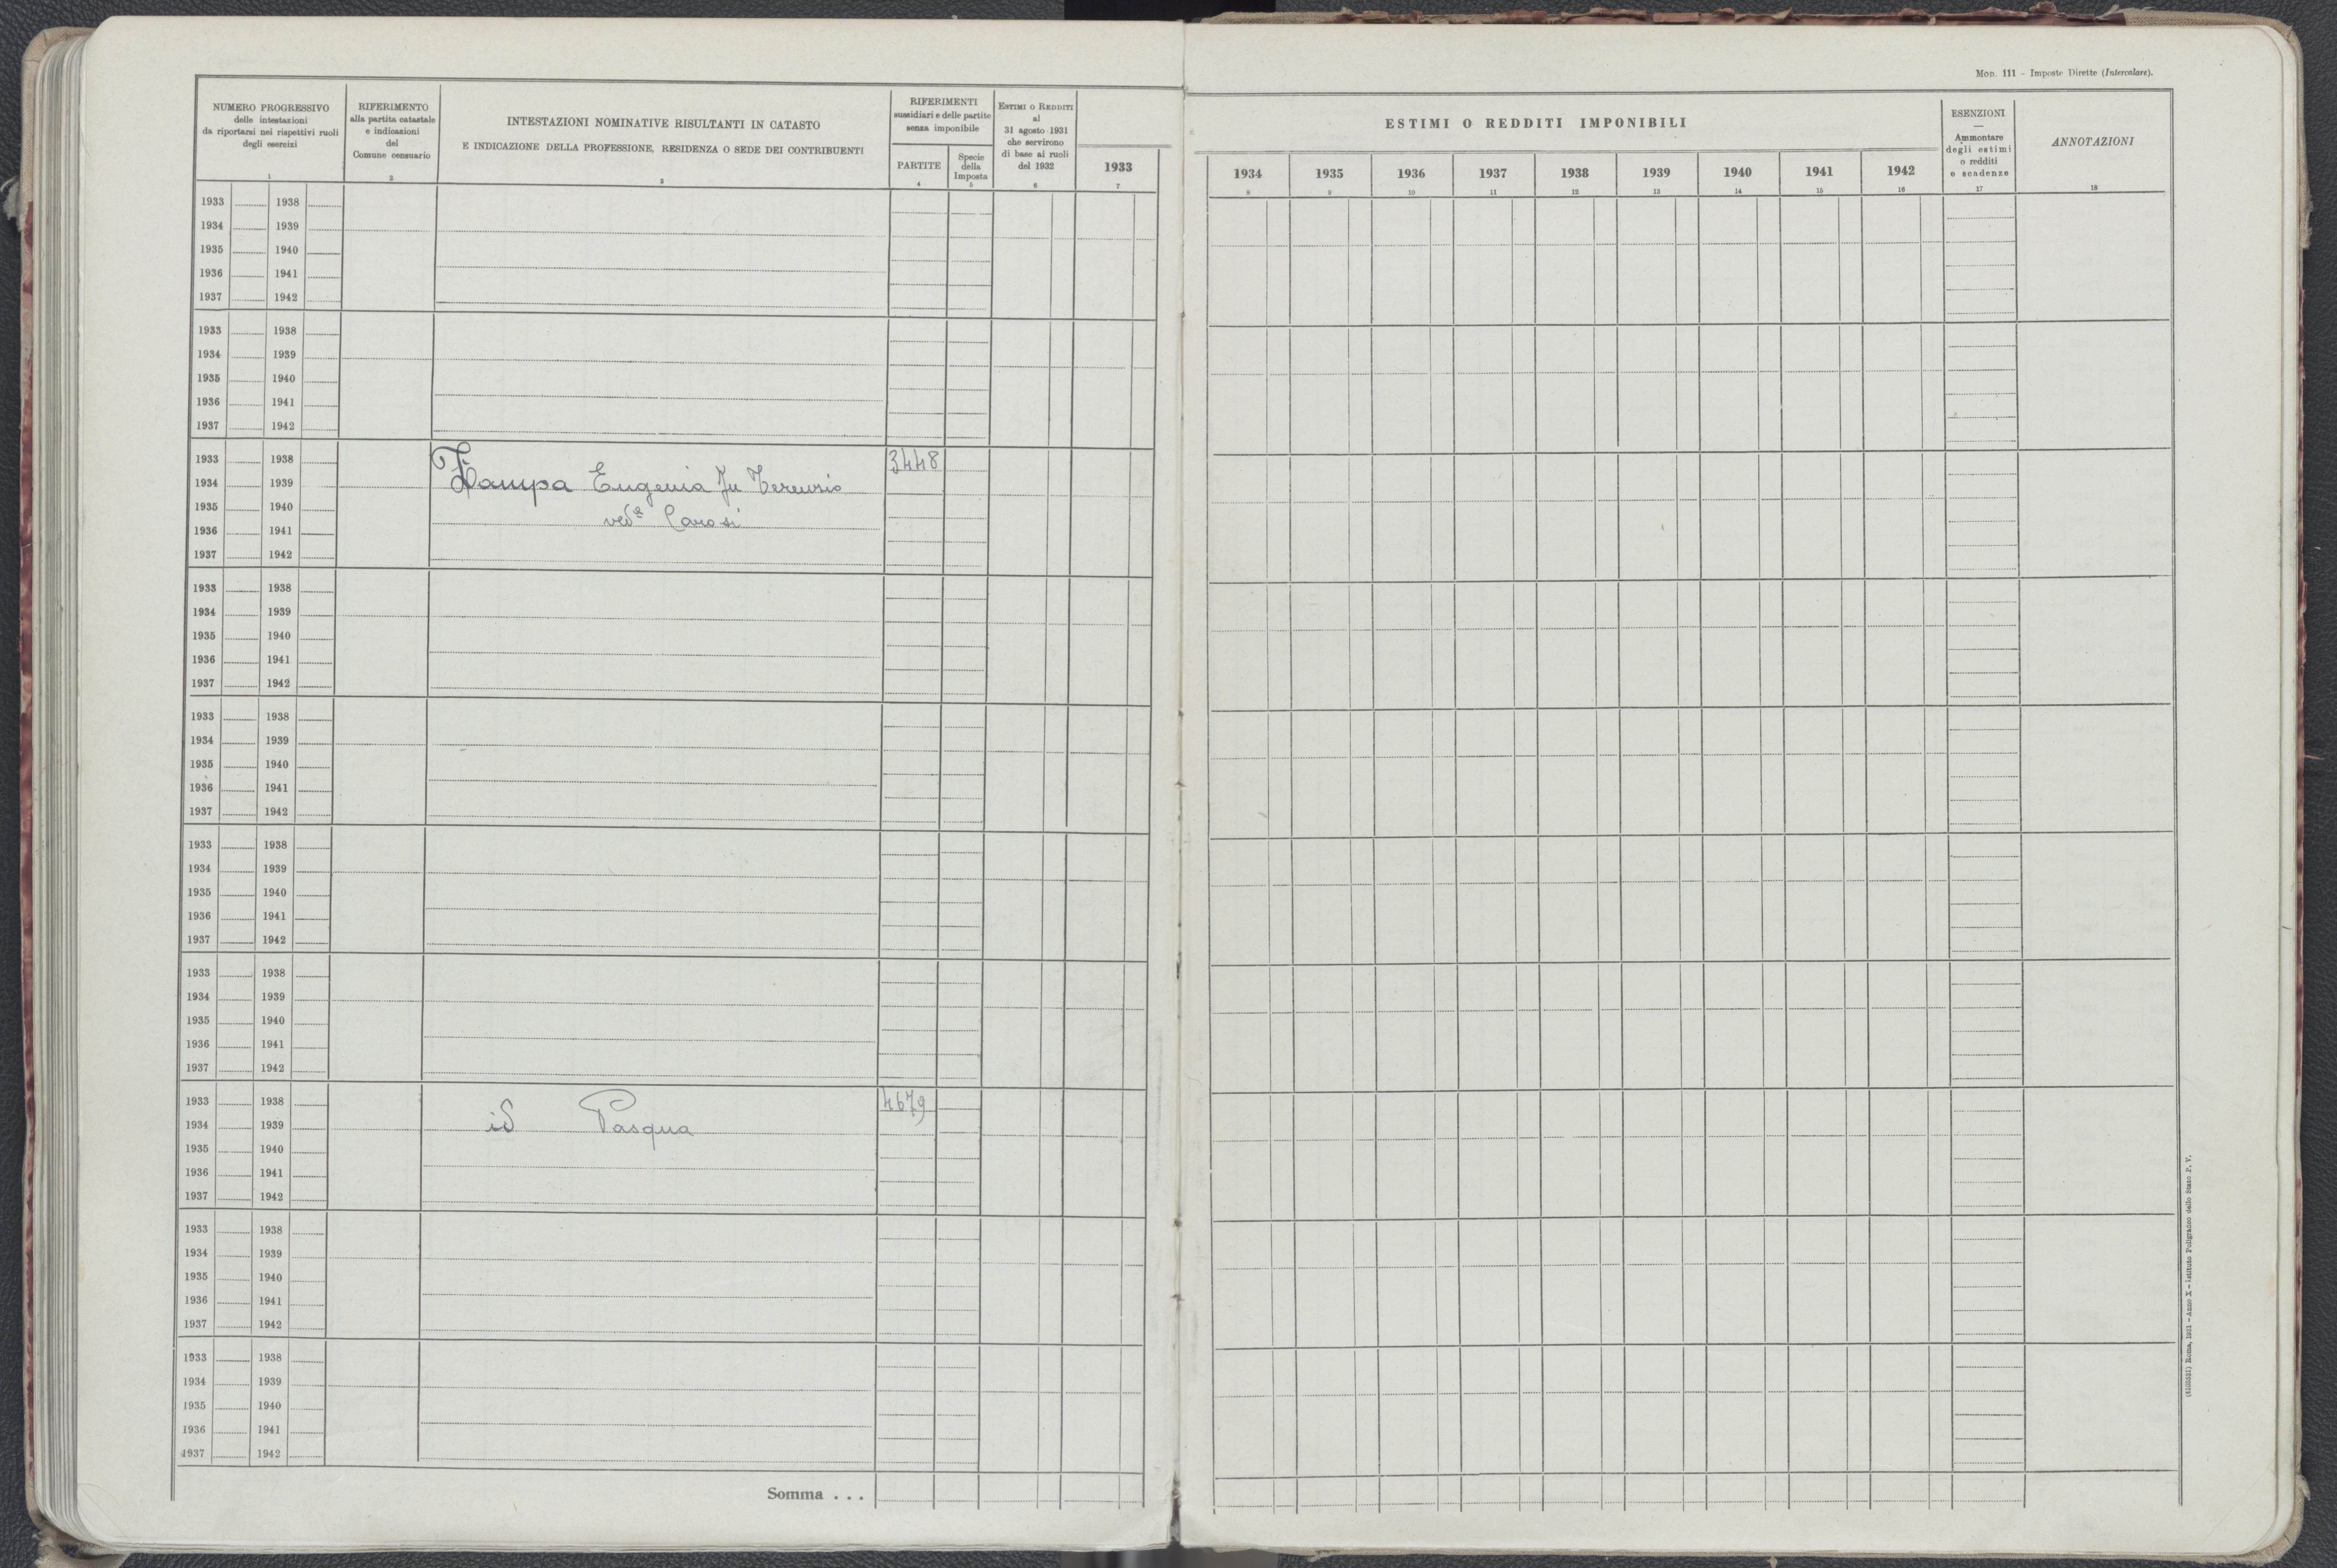 MOD. 111 - Imposte Dirette (Intercalare).
NUMERO PROGRESSIVO
delle intestazioni
da riportarsi nei rispettivi ruoli
degli esercizi
1
RIFERIMENTO
alla partita catastale
e indicazioni
del
Comune censuario
2
INTESTAZIONI NOMINATIVE RISULTANTI IN CATASTO
E INDICAZIONE DELLA PROFESSIONE, RESIDENZA O SEDE DEI CONTRIBUENTI
3
RIFERIMENTI
sussidiari e delle partite
senza imponibile
PARTITE
4
Specie
della
Imposta
5
ESTIMI O REDDITI
al
31 agosto 1931
che servirono
di base ai ruoli
del 1932
6
1933
7
ESTIMI O REDDITI IMPONIBILI
1934 1935 1936 1937 1938 1939 1940 1941 1942
8 9 10 11 12 13 14 15 16
ESENZIONI
—
Ammontare
degli estimi
o redditi
e scadenze
17
ANNOTAZIONI
18
1933 1938
1934 1939
1935 1940
1936 1941
1937 1942
1933 1938
1934 1939
1935 1940
1936 1941
1937 1942
1933 1938 3448
1934 1939 Eugenia fu Terenzio
1935 1940 ved.a Carosi
1936 1941
1937 1942
1933 1938
1934 1939
1935 1940
1936 1941
1937 1942
1933 1938
1934 1939
1935 1940
1936 1941
1937 1942
1933 1938
1934 1939
1935 1940
1936 1941
1937 1942
1933 1938
1934 1939
1935 1940
1936 1941
1937 1942
1933 1938 4679
1934 1939 id Pasqua
1935 1940
1936 1941
1937 1942
1933 1938
1934 1939
1935 1940
1936 1941
1937 1942
1933 1938
1934 1939
1935 1940
1936 1941
1937 1942
Somma . . .
Roma, 1931 - Anno X - Istituto Poligrafico dello Stato P. V.